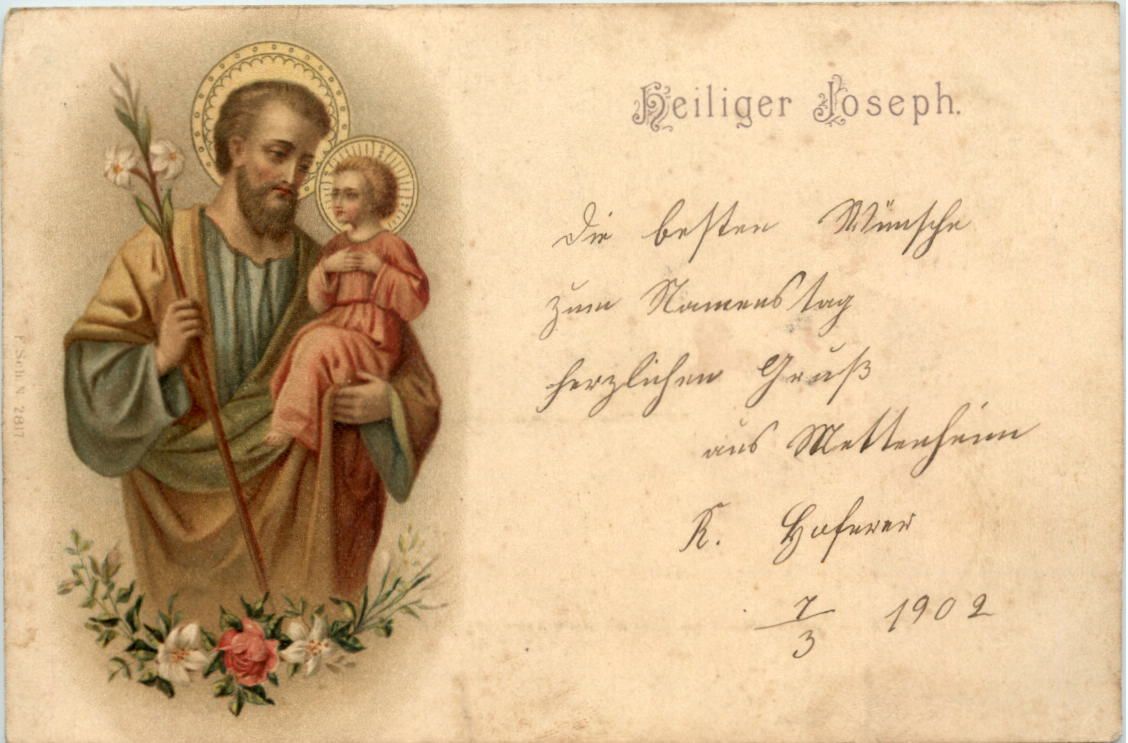 Heiliger Joseph.
Die besten Wünsche
zum Namenstag
herzlichen Gruß
aus Mettenheim
K. Hoferer
7/3 1902
P. Sch. N. 2817